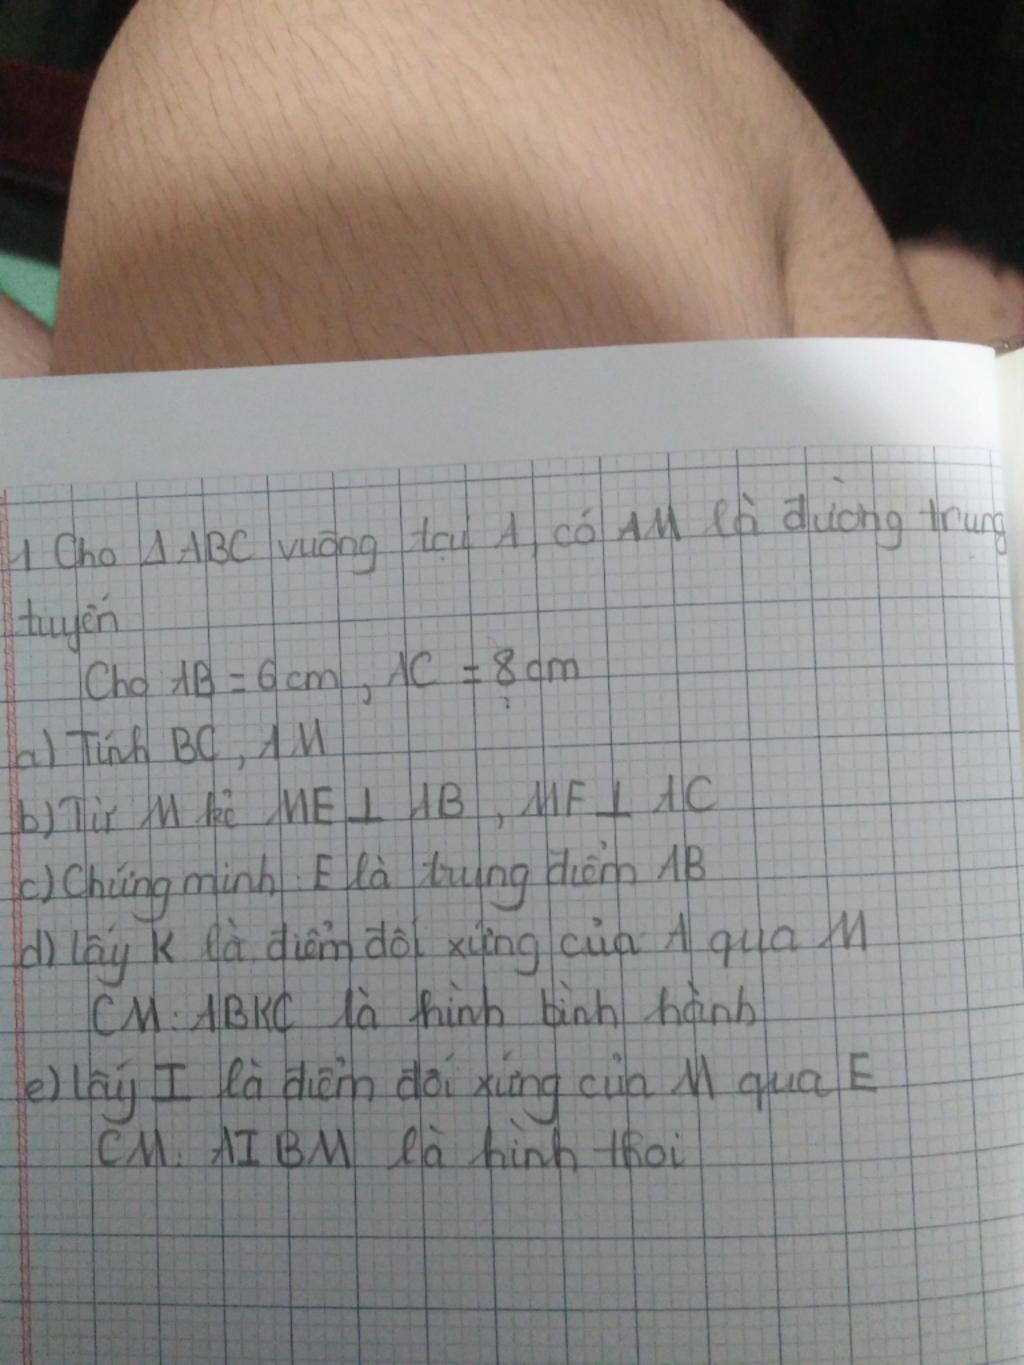 1 Cho ΔABC vuông tại A, có AM là đường trung
tuyến
Cho AB = 6cm, AC = 8cm
a) Tính BC, AM
b) Từ M kẻ ME ⊥ AB, MF ⊥ AC
c) Chứng minh E là trung điểm AB
d) lấy K là điểm đối xứng của A qua M
CM: ABKC là hình bình hành
e) lấy I là điểm đối xứng của M qua E
CM: AIBM là hình thoi